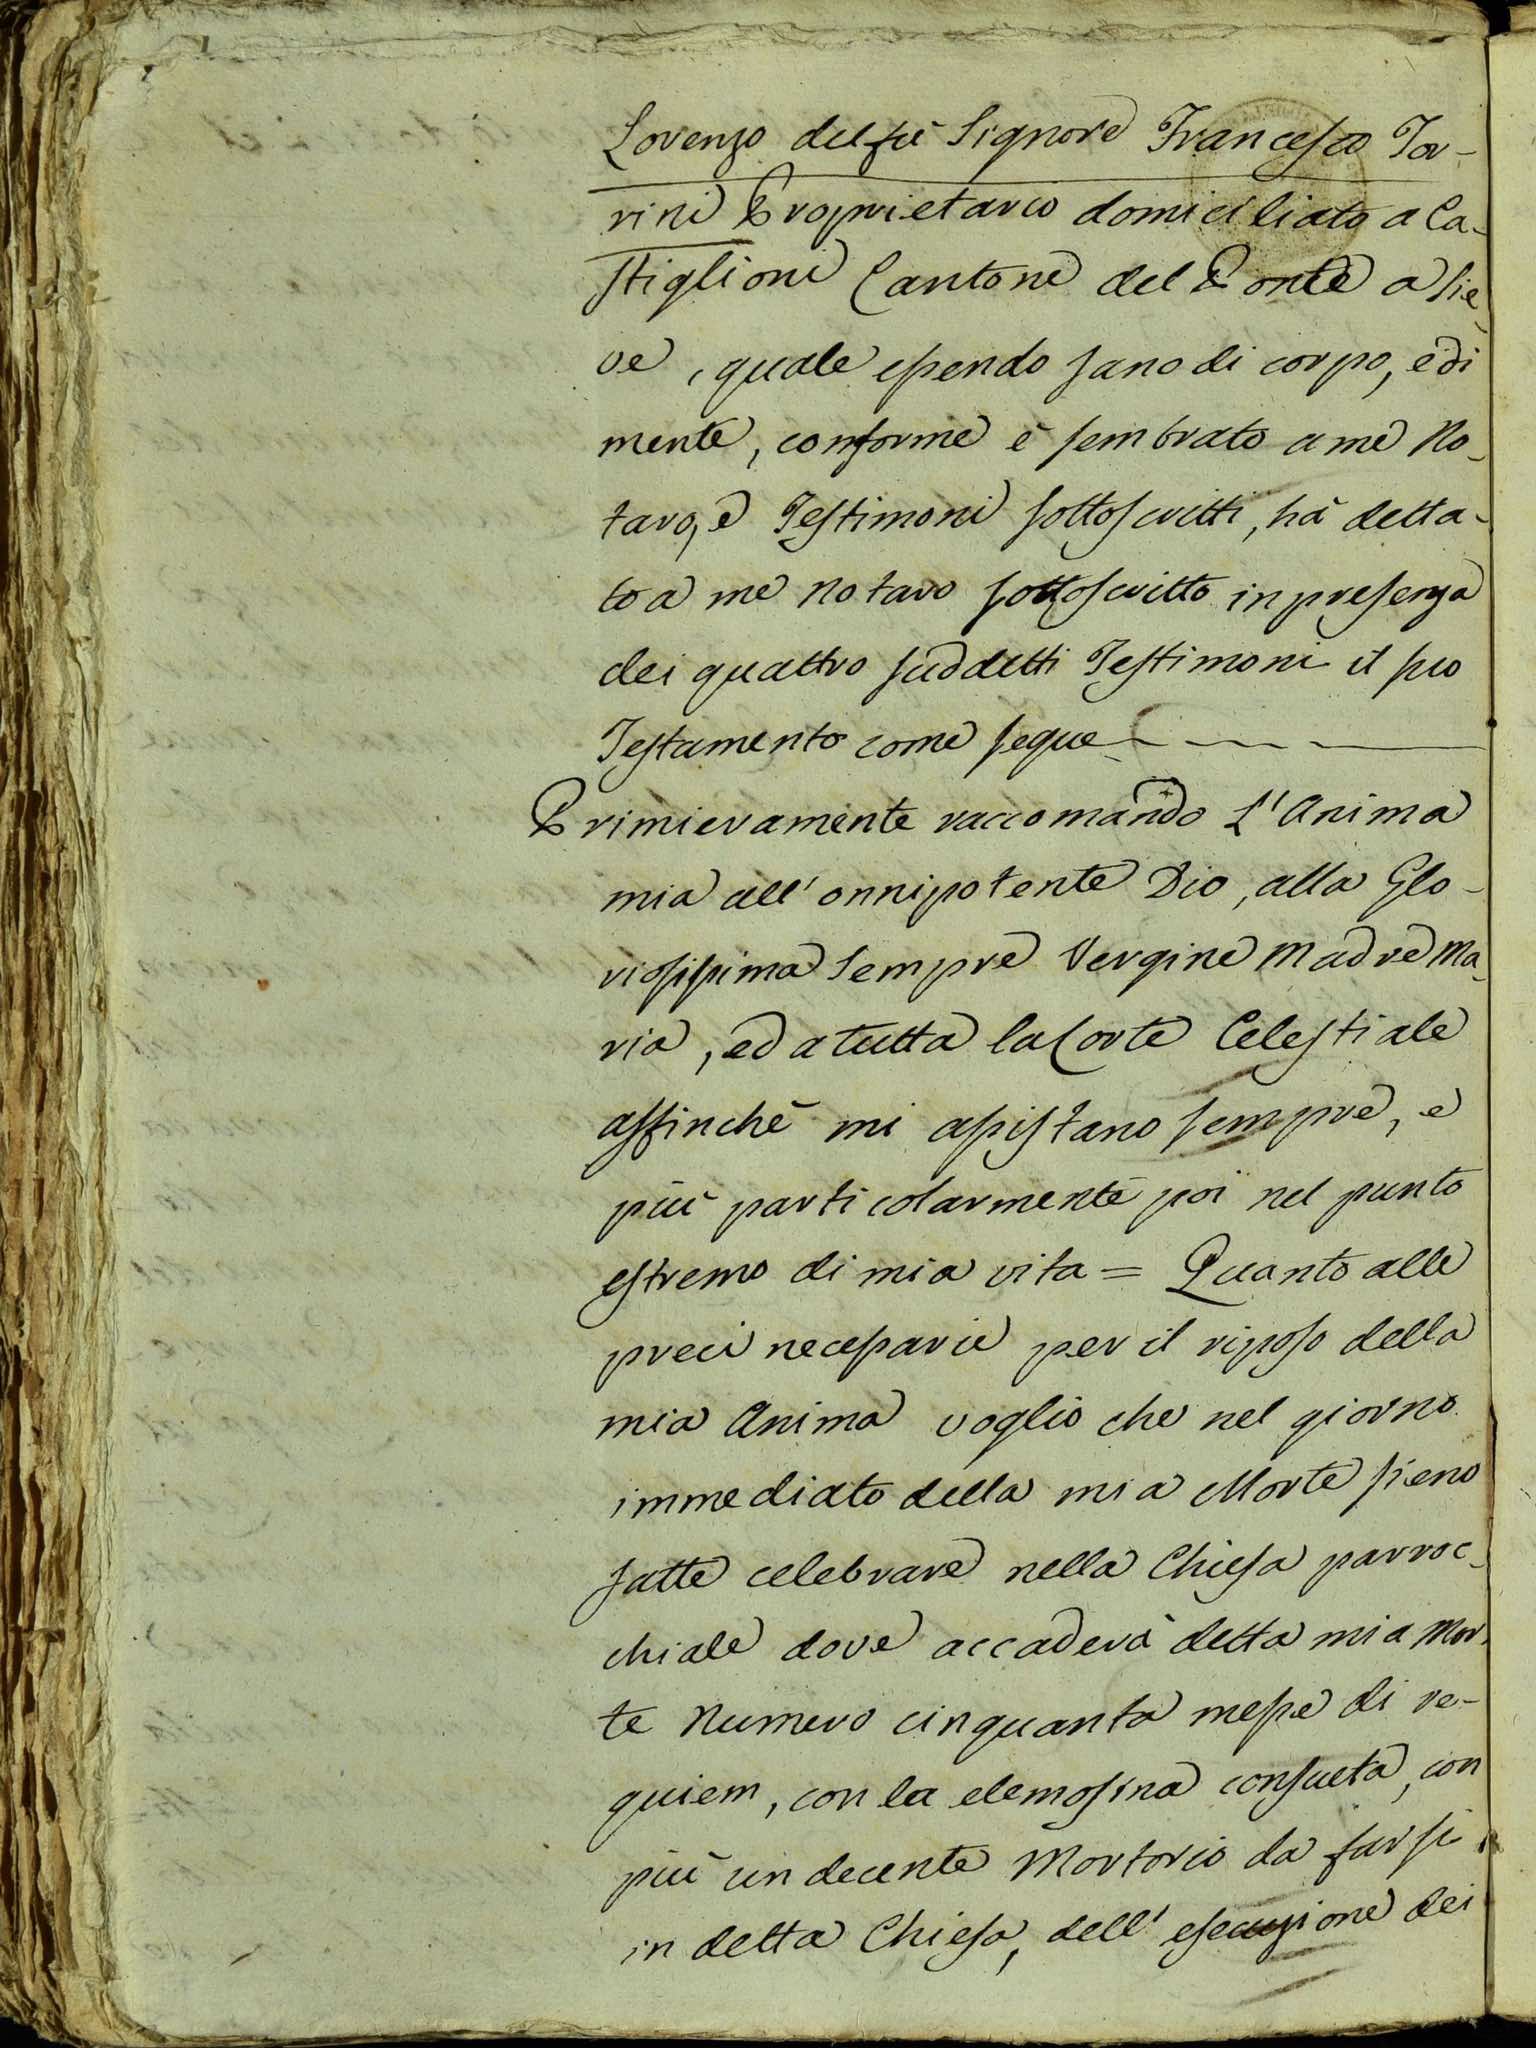 Lorenzo del fù Signore Francesco Tor-
rini Proprietario domiciliato a Ca-
stiglioni Cantone del Ponte a Sie-
ve, quale essendo sano di corpo, e di
mente, conforme è sembrato a me No-
taro, e Testimoni sottoscritti, hà detta-
to a me Notaro sottoscritto in presenza
dei quattro suddetti Testimoni il suo
Testamento come segue
Primieramente raccomando L'Anima
mia all'onnipotente Dio, alla Glo-
riosissima sempre Vergine Madre Ma-
ria, ed a tutta la Corte Celestiale
affinchè mi assistano sempre, e
più particolarmente poi nel punto
estremo di mia vita = Quanto alle
preci necessarie per il riposo della
mia Anima voglio che nel giorno
immediato della mia Morte sieno
fatte celebrare nella Chiesa parroc-
chiale dove accaderà detta mia Mor-
te Numero cinquanta messe di re-
quiem, con la elemosina consueta, con
più un decente Mortorio da farsi
in detta Chiesa, dell'esecuzione dei